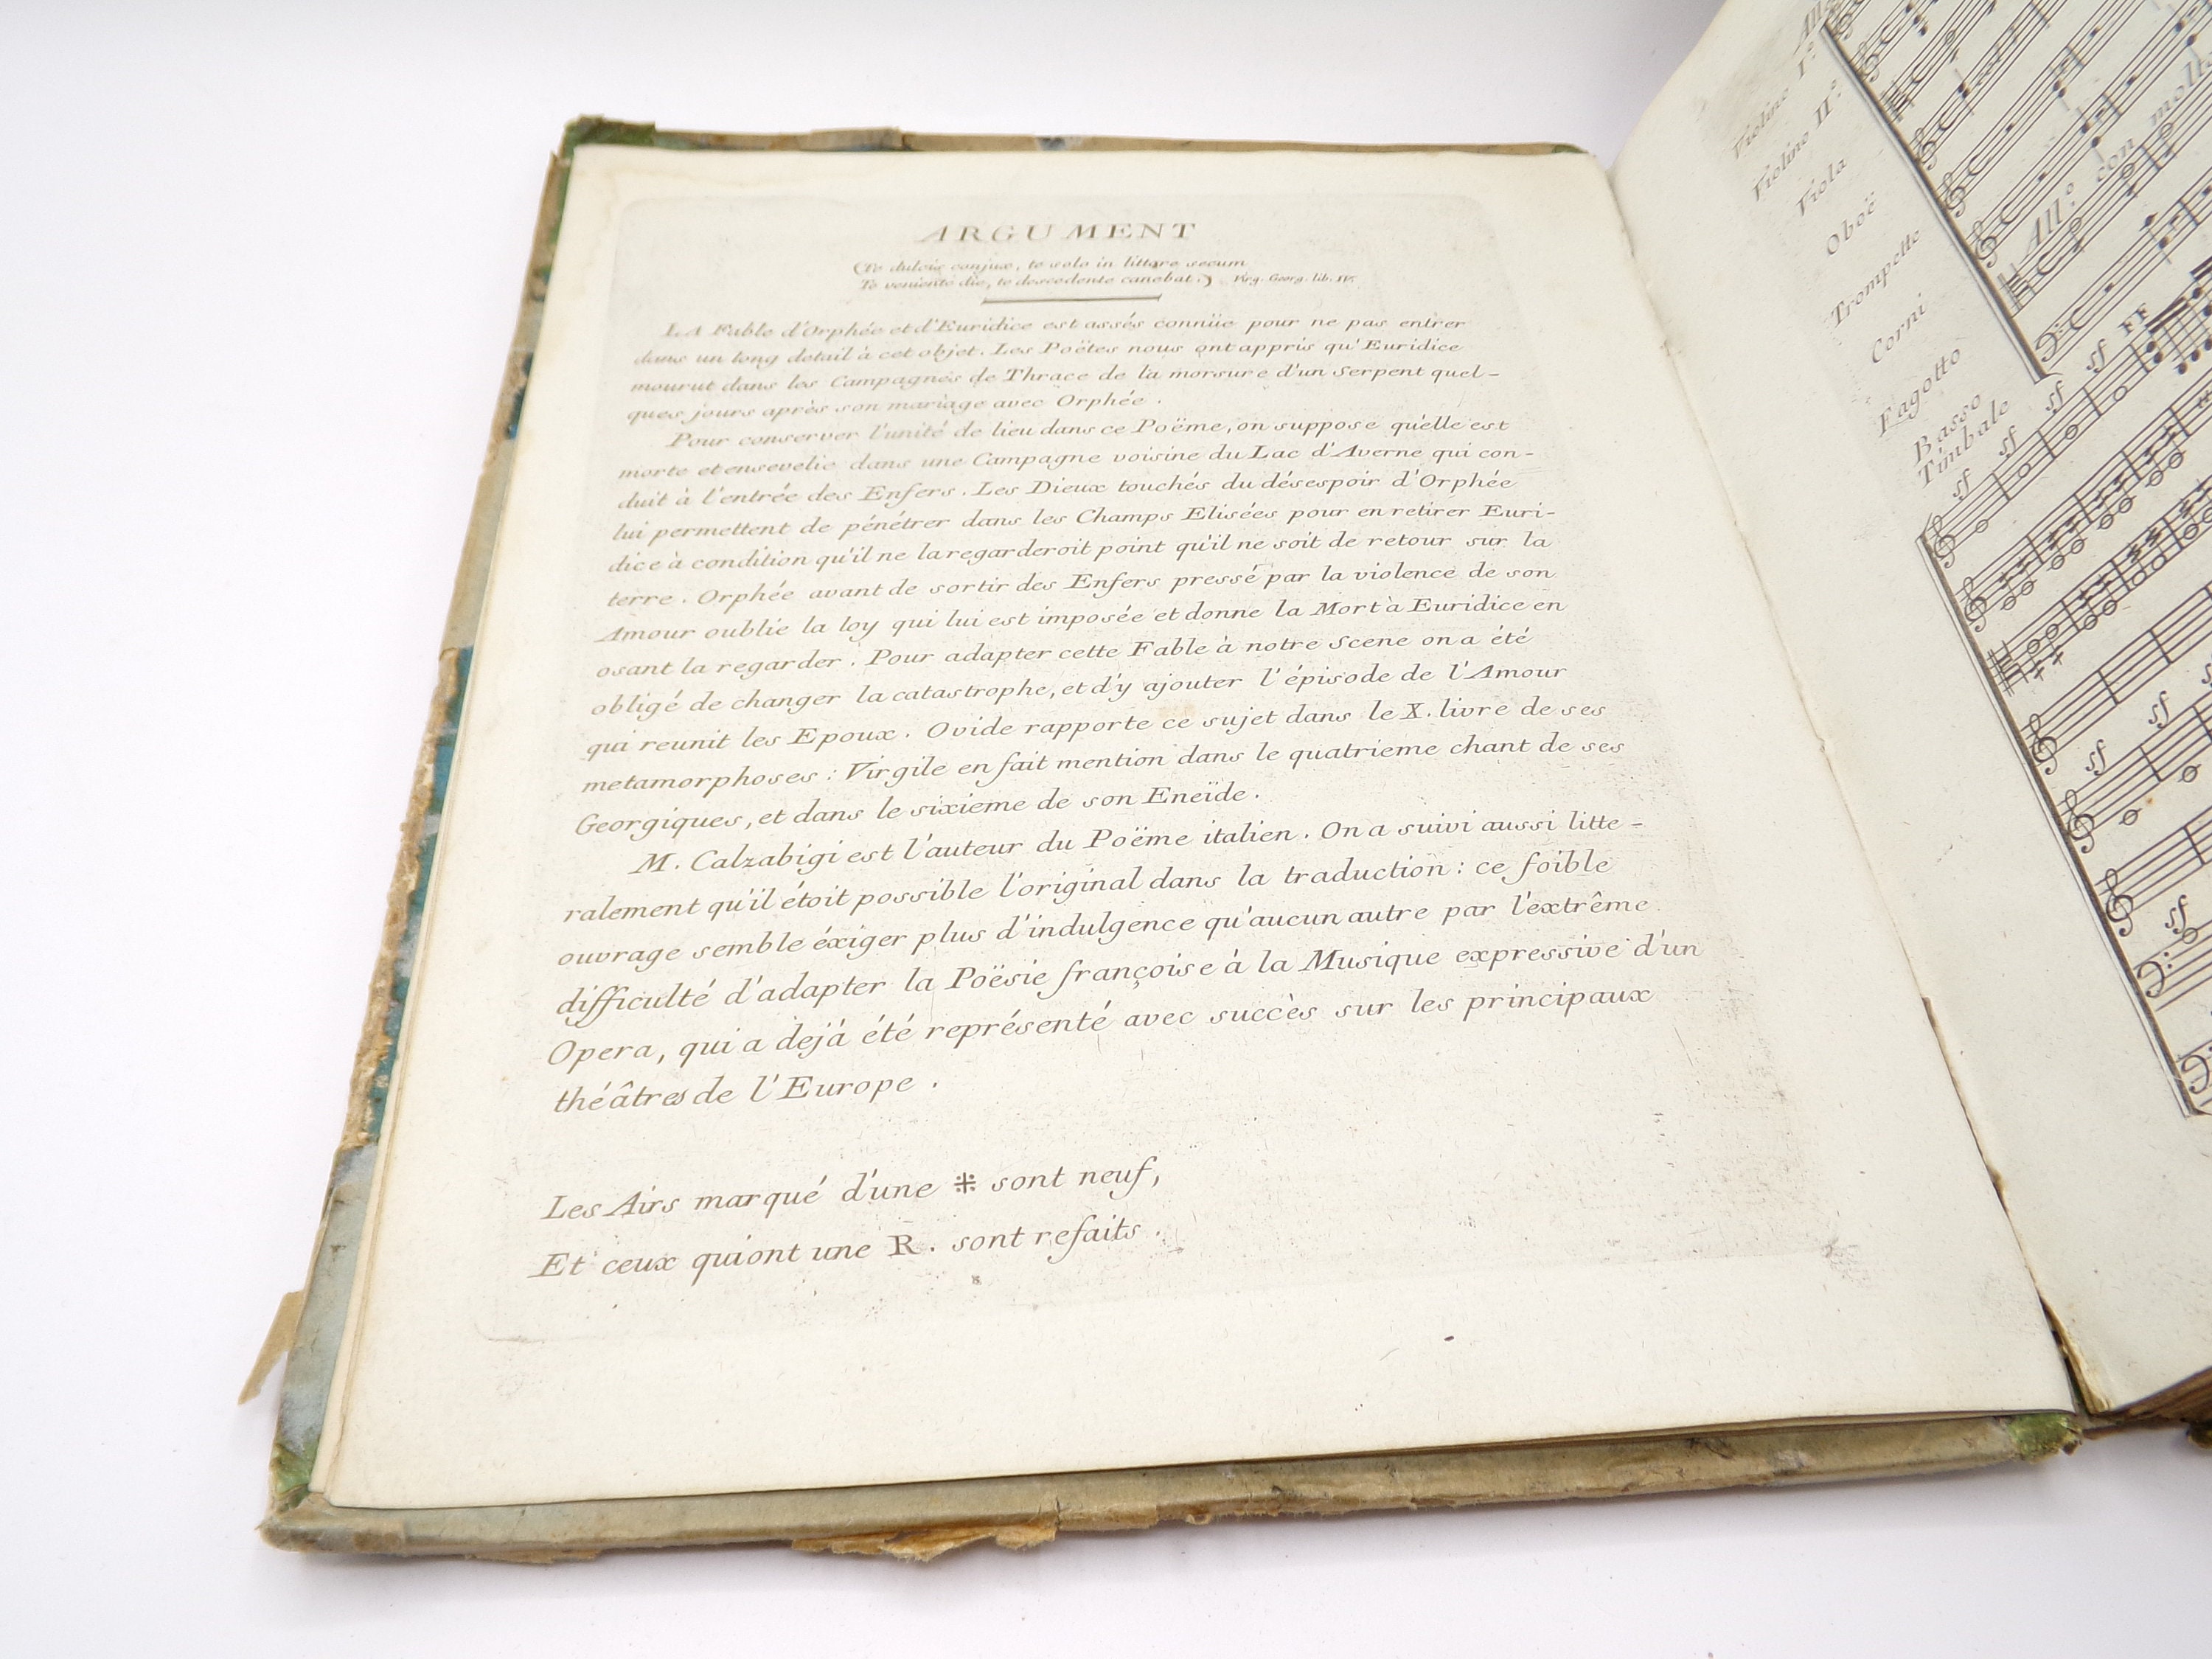 ARGUMENT
(Te dulcis conjux, te solo in littore secum
Te veniente die, te descedente canebat.) Virg. Georg. lib. IV.
LA Fable d'Orphée et d'Euridice est assés connüe pour ne pas entrer
dans un long detail à cet objet. Les Poëtes nous ont appris qu'Euridice
mourut dans les Campagnes de Thrace de la morsure d'un Serpent quel-
ques jours après son mariage avec Orphée.
Pour conserver l'unité de lieu dans ce Poëme, on suppose qu'elle est
morte et ensevelie dans une Campagne voisine du Lac d'Averne qui con-
duit à l'entrée des Enfers. Les Dieux touchés du désespoir d'Orphée
lui permettent de pénétrer dans les Champs Elisées pour en retirer Euri-
dice à condition qu'il ne la regarderoit point qu'il ne soit de retour sur la
terre. Orphée avant de sortir des Enfers pressé par la violence de son
Amour oublie la loy qui lui est imposée et donne la Mort à Euridice en
osant la regarder. Pour adapter cette Fable à notre Scene on a été
obligé de changer la catastrophe, et d'y ajouter l'épisode de l'Amour
qui reunit les Epoux. Ovide rapporte ce sujet dans le X. livre de ses
metamorphoses: Virgile en fait mention dans le quatrieme chant de ses
Georgiques, et dans le sixieme de son Eneïde.
M. Calzabigi est l'auteur du Poëme italien. On a suivi aussi litte-
ralement qu'il étoit possible l'original dans la traduction: ce foible
ouvrage semble éxiger plus d'indulgence qu'aucun autre par l'extrême
difficulté d'adapter la Poësie françoise à la Musique expressive d'un
Opera, qui a dejà été représenté avec succès sur les principaux
théâtres de l'Europe.
Les Airs marqué d'une ⁜ sont neuf,
Et ceux qui ont une R. sont refaits.
Violino I.º
Violino II.º
Viola
Oboë
Trompette
Corni
Fagotto
Basso
Timbale
All.º con molto
sf sf sf sf FF
sf sf
sf